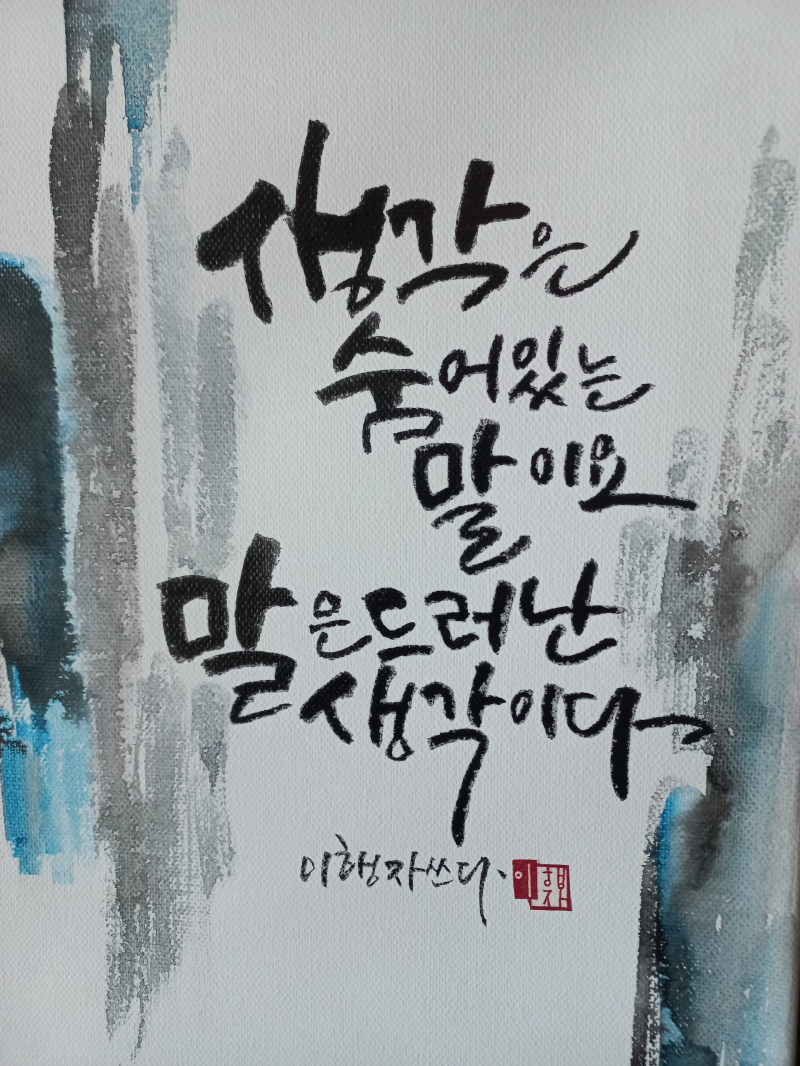 생각은
숨어있는
말이요
말은드러난
생각이다
이행자쓰다.